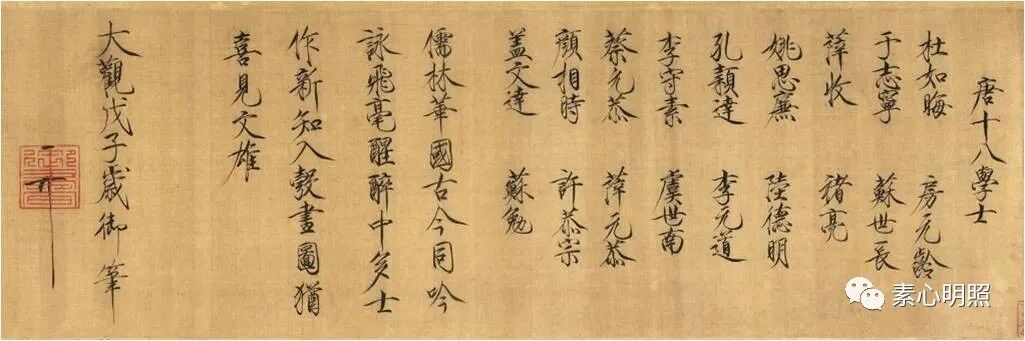 唐十八學士
杜如晦 房元齡
于志寧 蘇世長
薛收 褚亮
姚思廉 陸德明
孔穎達 李元道
李守素 虞世南
蔡元恭 薛元恭
顏相時 許恭宗
蓋文達 蘇勉
儒林華國古今同吟
詠飛毫醒醉中多士
作新知入彀畫圖猶
喜見文雄
大觀戊子歲御筆
素心明照